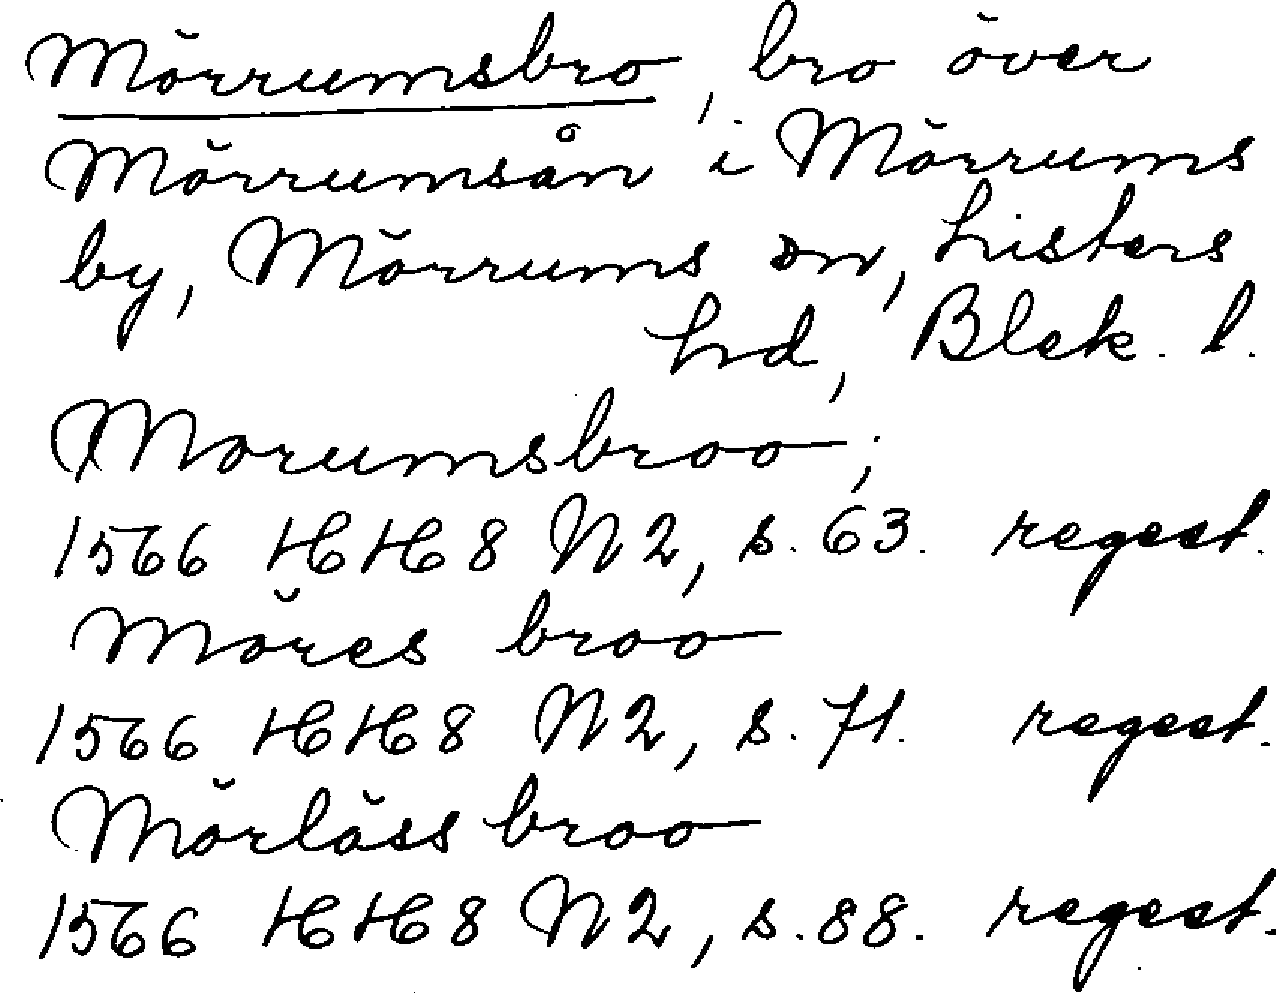 Mörrumsbro, bro över
Mörrumsån i Mörrums
by, Mörrums sn, Listers
hd, Blek. l.
Morumsbroo;
1566 HH 8 N 2, s. 63. regest.
Möres broo
1566 HH 8 N 2, s. 71. regest.
Mörläss broo
1566 HH 8 N 2, s. 88. regest.